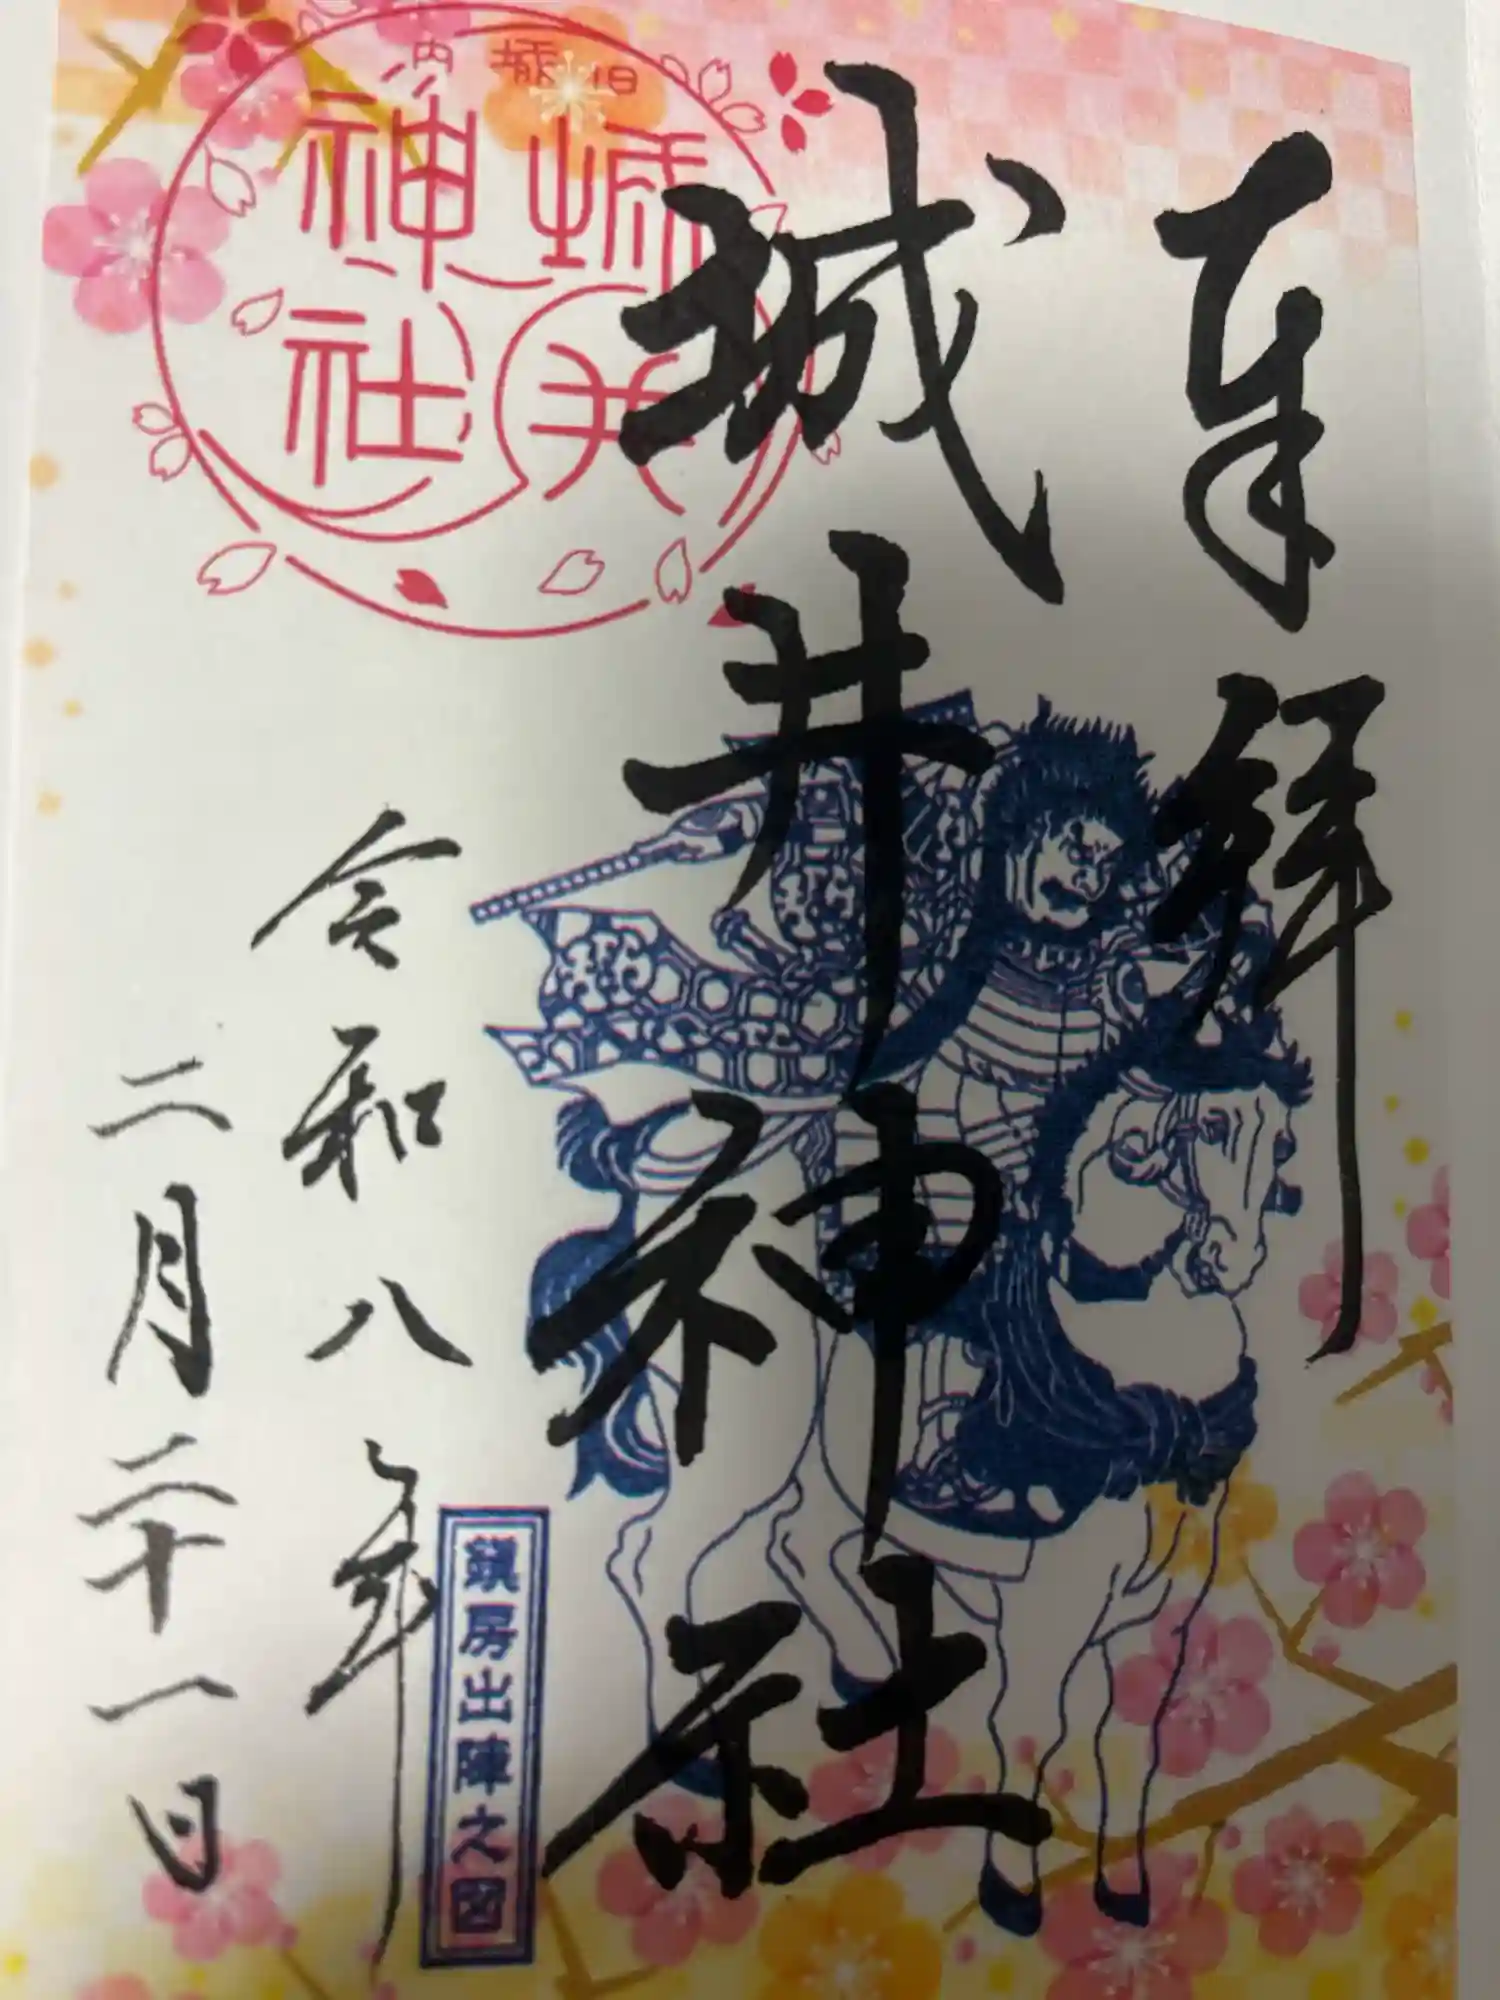 奉拝
城井神社
旧城内
城井
神社
令和八年
二月二十一日
鎮房出陣之図